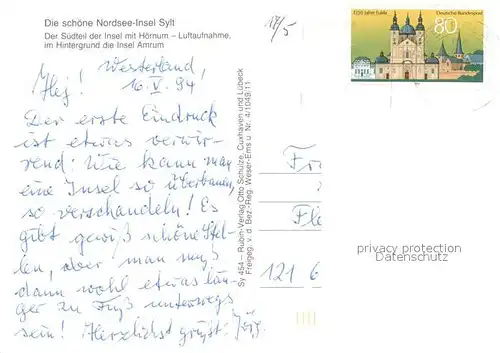 Die schöne Nordsee-Insel Sylt
Der Südteil der Insel mit Hörnum – Luftaufnahme,
im Hintergrund die Insel Amrum
18/5
1250 Jahre Fulda
Deutsche Bundespost
80
Westerland,
Hej! 16. V. 94
Der erste Eindruck
ist etwas verwir-
rend: Wie kann man
eine Insel so überbauen,
so verschandeln! Es
gibt gewiß schöne Stel-
len, aber man muß
dann wohl etwas län-
ger zu Fuß unterwegs
sein! Herzlichst grüßt:
Sy 454 – Rubin-Verlag Otto Schulze, Cuxhaven und Lübeck
Freigeg. v. d. Bez.-Reg. Weser-Ems u. Nr. 4/1049:11
Fr
Fle
121 6
privacy protection
Datenschutz